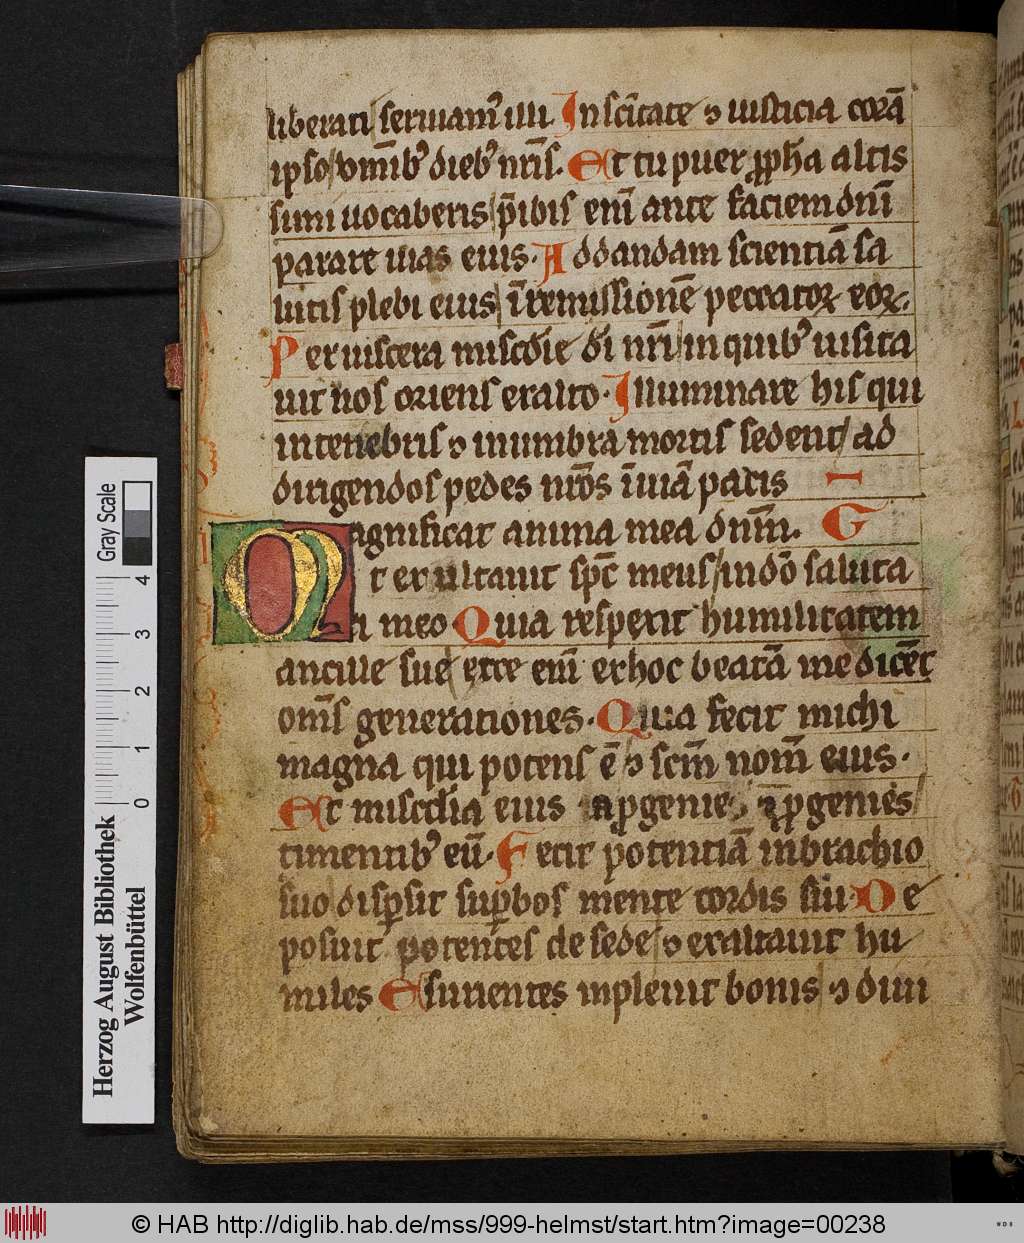 liberati seruiam᷒ illi In sc̄itate ⁊ iusticia corā
ipso om̄ib᷒ dieb᷒ nr̄is. Et tu puer ꝓph̄a altis
simi uocaberis p̄ibis eni̅ ante faciem dn̄i
parare uias eius. Ad dandam scientiā sa
lutis plebi eius ī remissionē peccatoꝝ eoꝝ.
Per uiscera miscd̄ie di̅ nr̄i in quib᷒ uisita
uit nos oriens exalto. Illuminare his qui
in tenebris ⁊ in umbra mortis sedent ad
dirigendos pedes nr̄os ī uiā pacis
Magnificat anima mea dn̄m. G
t exultauit sp̄c meus in dō saluta
ri meo Quia respexit humilitatem
ancille sue ecce eni̅ exhoc beatā me dicēt
om̄s generationes. Quia fecit michi
magna qui potens ē ⁊ scm̄ nom̄ eius.
Et miscd̄ia eius a ꝓgenie ī ꝓgenies
timentib᷒ eū. Fecit potentiā in brachio
suo disꝑsit suꝑbos mente cordis sūi De
posuit potentes de sede ⁊ exaltauit hu
miles Esurientes inpleuit bonis ⁊ diui
Gray Scale
4
3
2
1
0
Herzog August Bibliothek
Wolfenbüttel
© HAB http://diglib.hab.de/mss/999-helmst/start.htm?image=00238